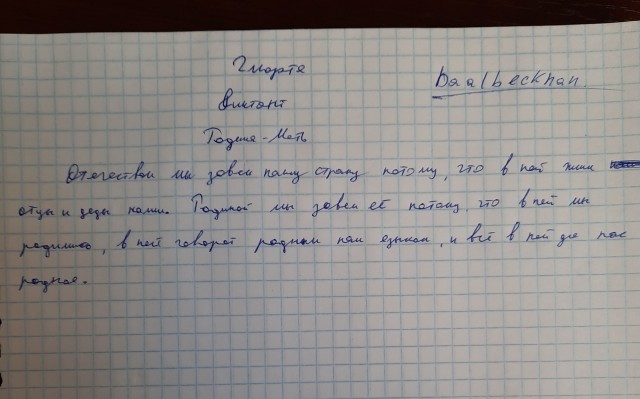 2 марта
baalbeckhan.
Диктант
Родина-Мать
Отечеством мы зовём нашу страну потому, что в ней жили
отцы и деды наши. Родиной мы зовём её потому, что в ней мы
родились, в ней говорят родным нам языком, и всё в ней для нас
родное.